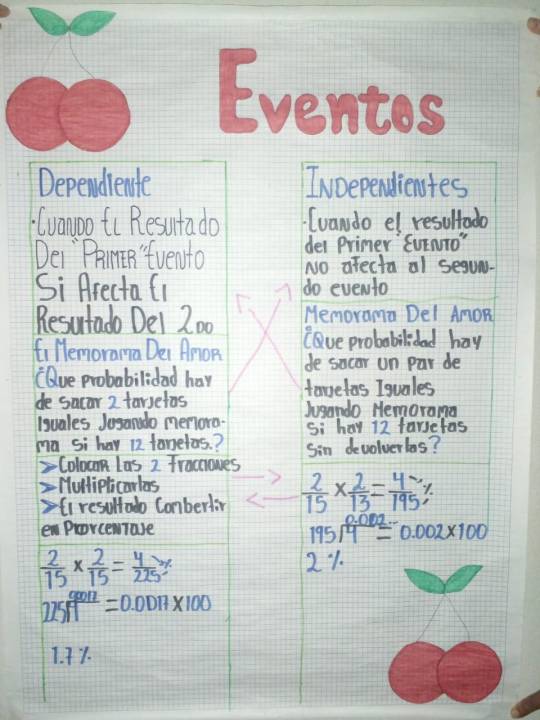 Eventos
Dependiente
·Cuando El Resultado
Del "Primer" Evento
Si Afecta El
Resultado Del 2do
El Memorama Del Amor
¿Que probabilidad hay
de sacar 2 tarjetas
Iguales Jugando memora-
ma si hay 12 tarjetas.?
➤Colocar Las 2 Fracciones
➤Multiplicarlas
➤El resultado Conbertir
en Prorcentaje
2/15 x 2/15 = 4/225 %
= 0.0017 x 100
1.7 %
Independientes
·Cuando el resultado
del Primer "Evento"
no afecta al segun-
do evento
Memorama Del Amor
¿Que probabilidad hay
de sacar un par de
tarjetas Iguales
Jugando Memorama
si hay 12 tarjetas
sin devolverlas?
2/15 x 2/13 = 4/195 %
0.002..
195 4 = 0.002 x 100
2 %